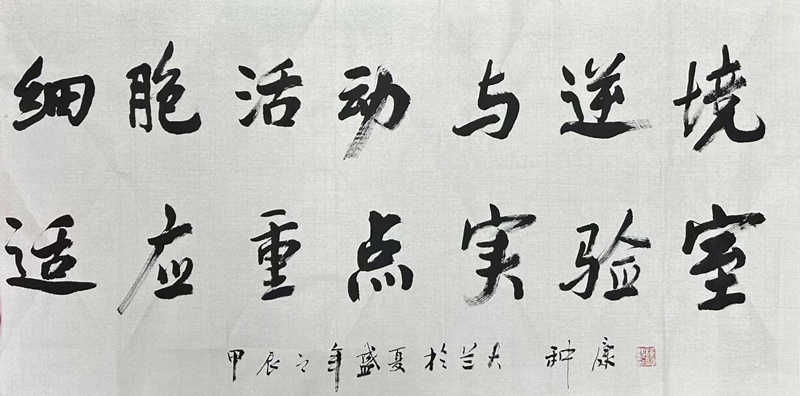 细胞活动与逆境
适应重点实验室
甲辰之年盛夏於兰大 种康